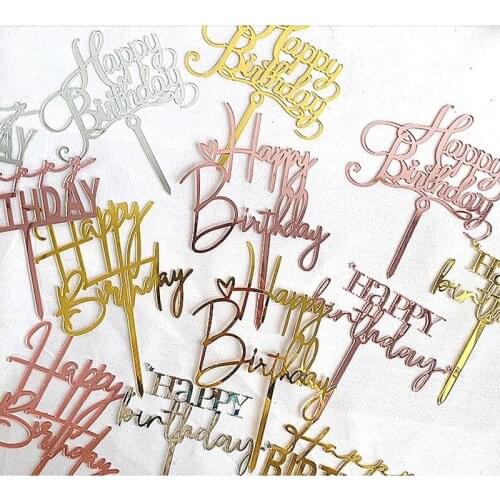 Happy
Birthday
Happy
Birthday
AY
appy
THDAY
Happy
Birthday
Happy
Birthday
Happy
Birthday
Ha
birth
Happy
Birthday
HAPPY
birthday
Happy
Birthday
HAPPY
birthday
Happy
BIRT